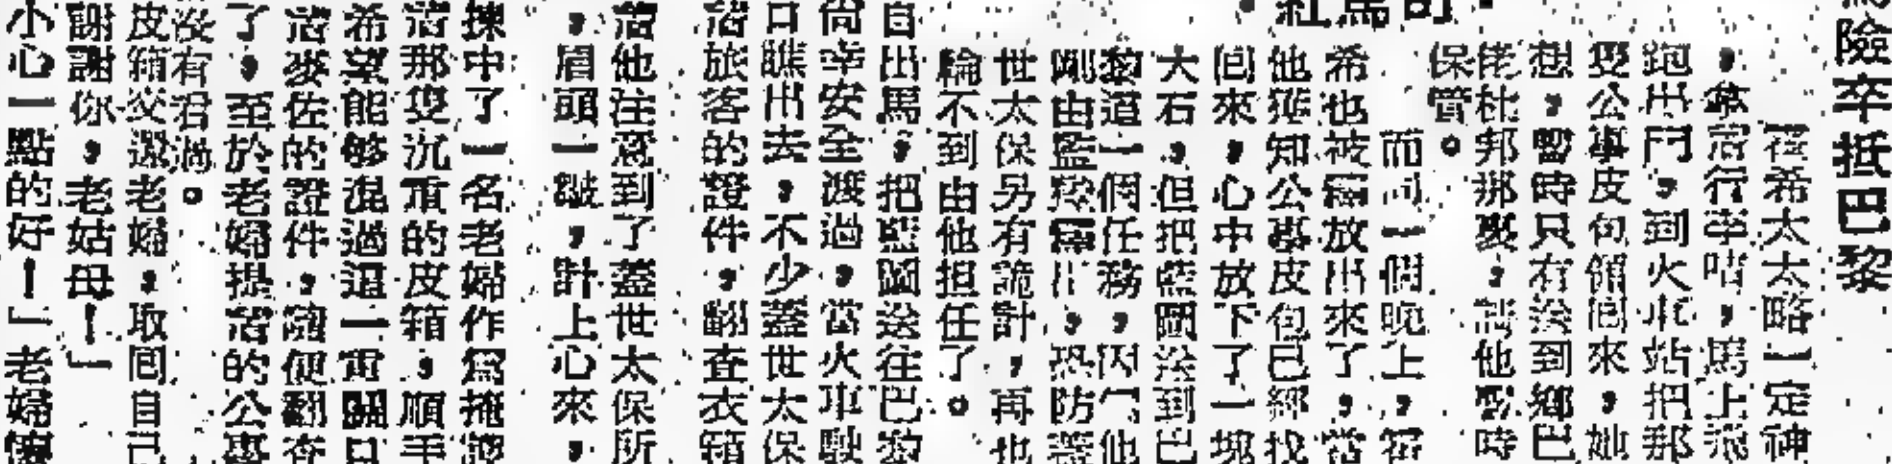 險卒抵巴黎
霍希太太略一定神
，拿行李，馬上飛
跑出門，到火車站把那
隻公事皮包領囘來，她
想，暫時只有送到鄉巴
佬杜邦那裏，請他暫時
保管。
而同一個晚上，霍
希也被釋放出來了，當
他獲知公事皮包已經找
囘來，心中放下了一塊
大石，但把藍圖送到巴
黎這一個任務，因為他
剛由監獄釋出，恐防蓋
世太保另有詭計，再也
輪不到由他担任了。
自出馬，把藍圖送往巴黎
尚幸安全渡過，當火車駛
口瞧出去，不少蓋世太保
着旅客的證件，翻查衣箱
着他注意到了蓋世太保所
，眉頭一皺，計上心來，
揀中了一名老婦作爲掩護
着那隻沉重的皮箱，順手
希望能够混過這一重關口
着麥佐的證件，隨便翻查
了，至於老婦提着的公事
沒有看過。
皮箱交還老婦，取囘自己
謝謝你，老姑母！」
小心一點的好！」老婦